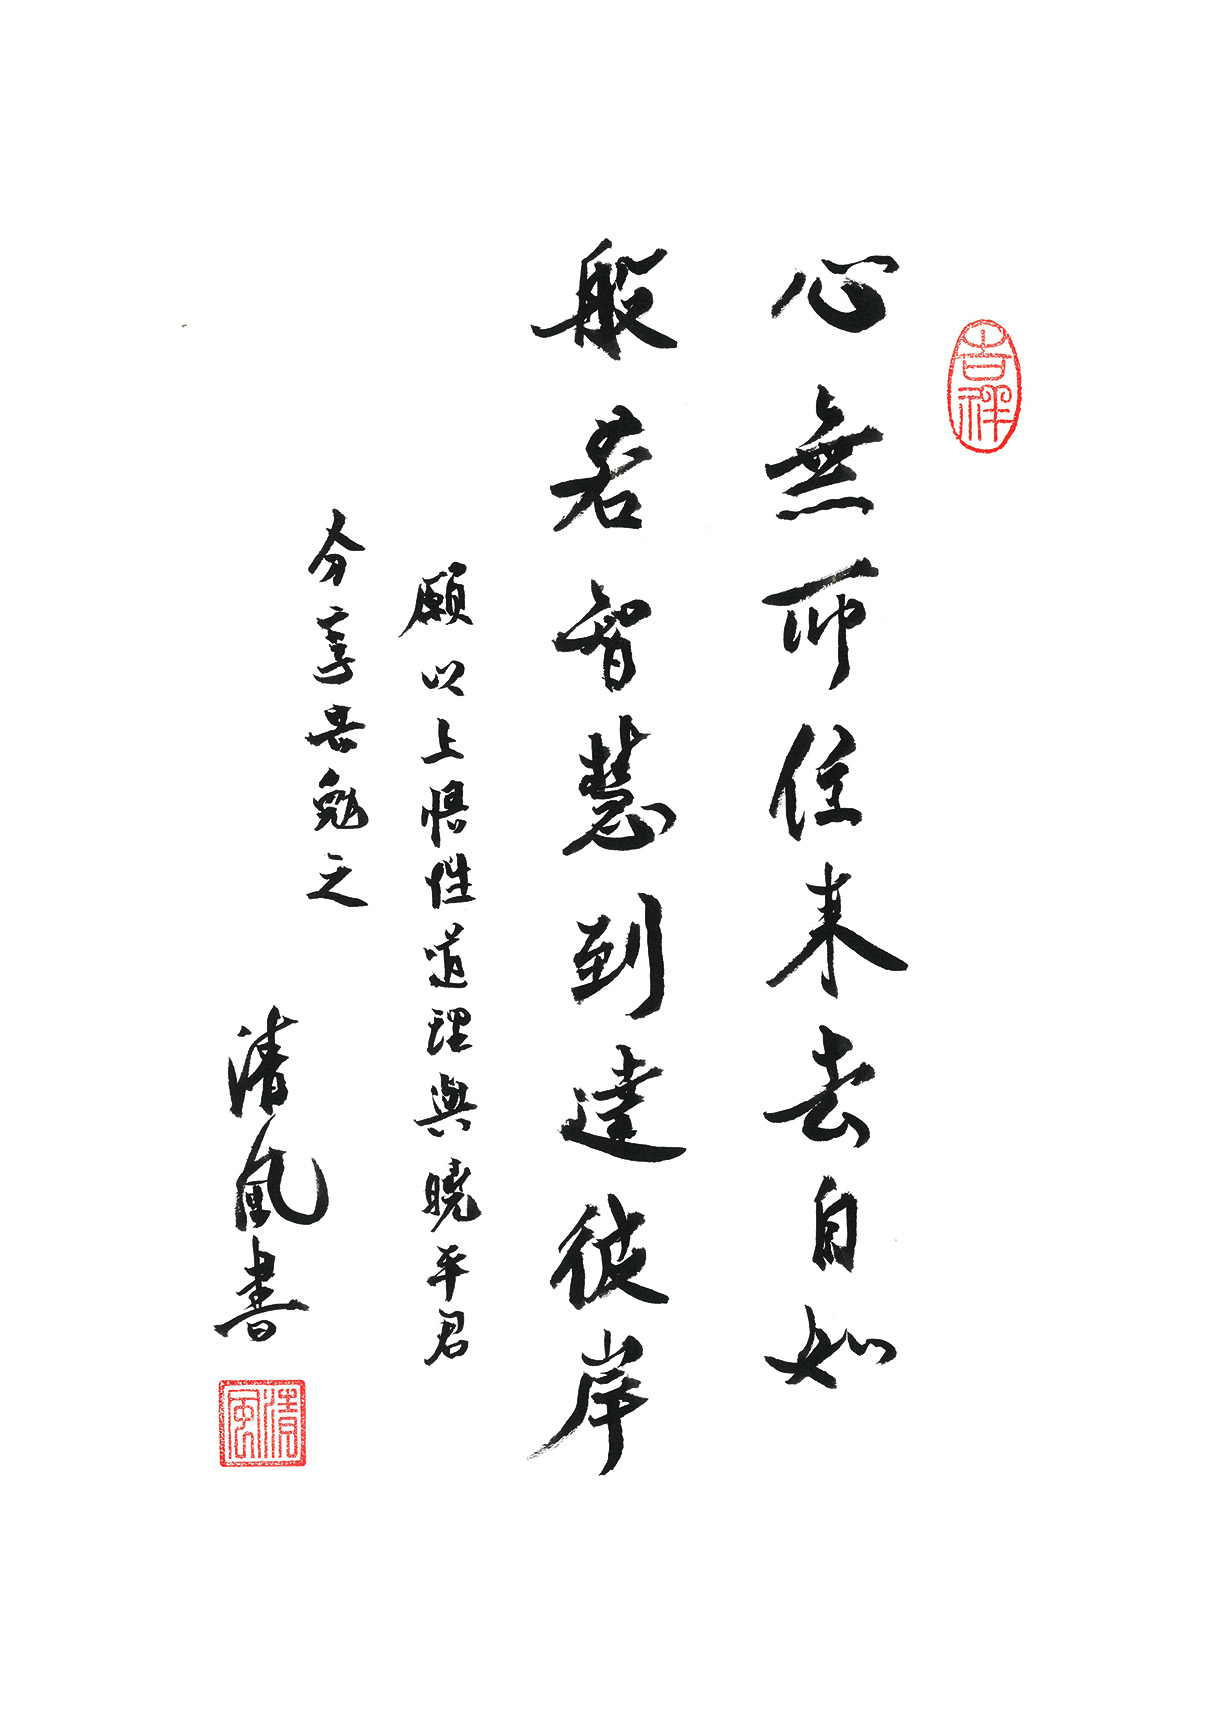 吉祥
心無所住来去自如
般若智慧到達彼岸
願以上悟性道理與曉平君
分享共勉之
清風書
清風